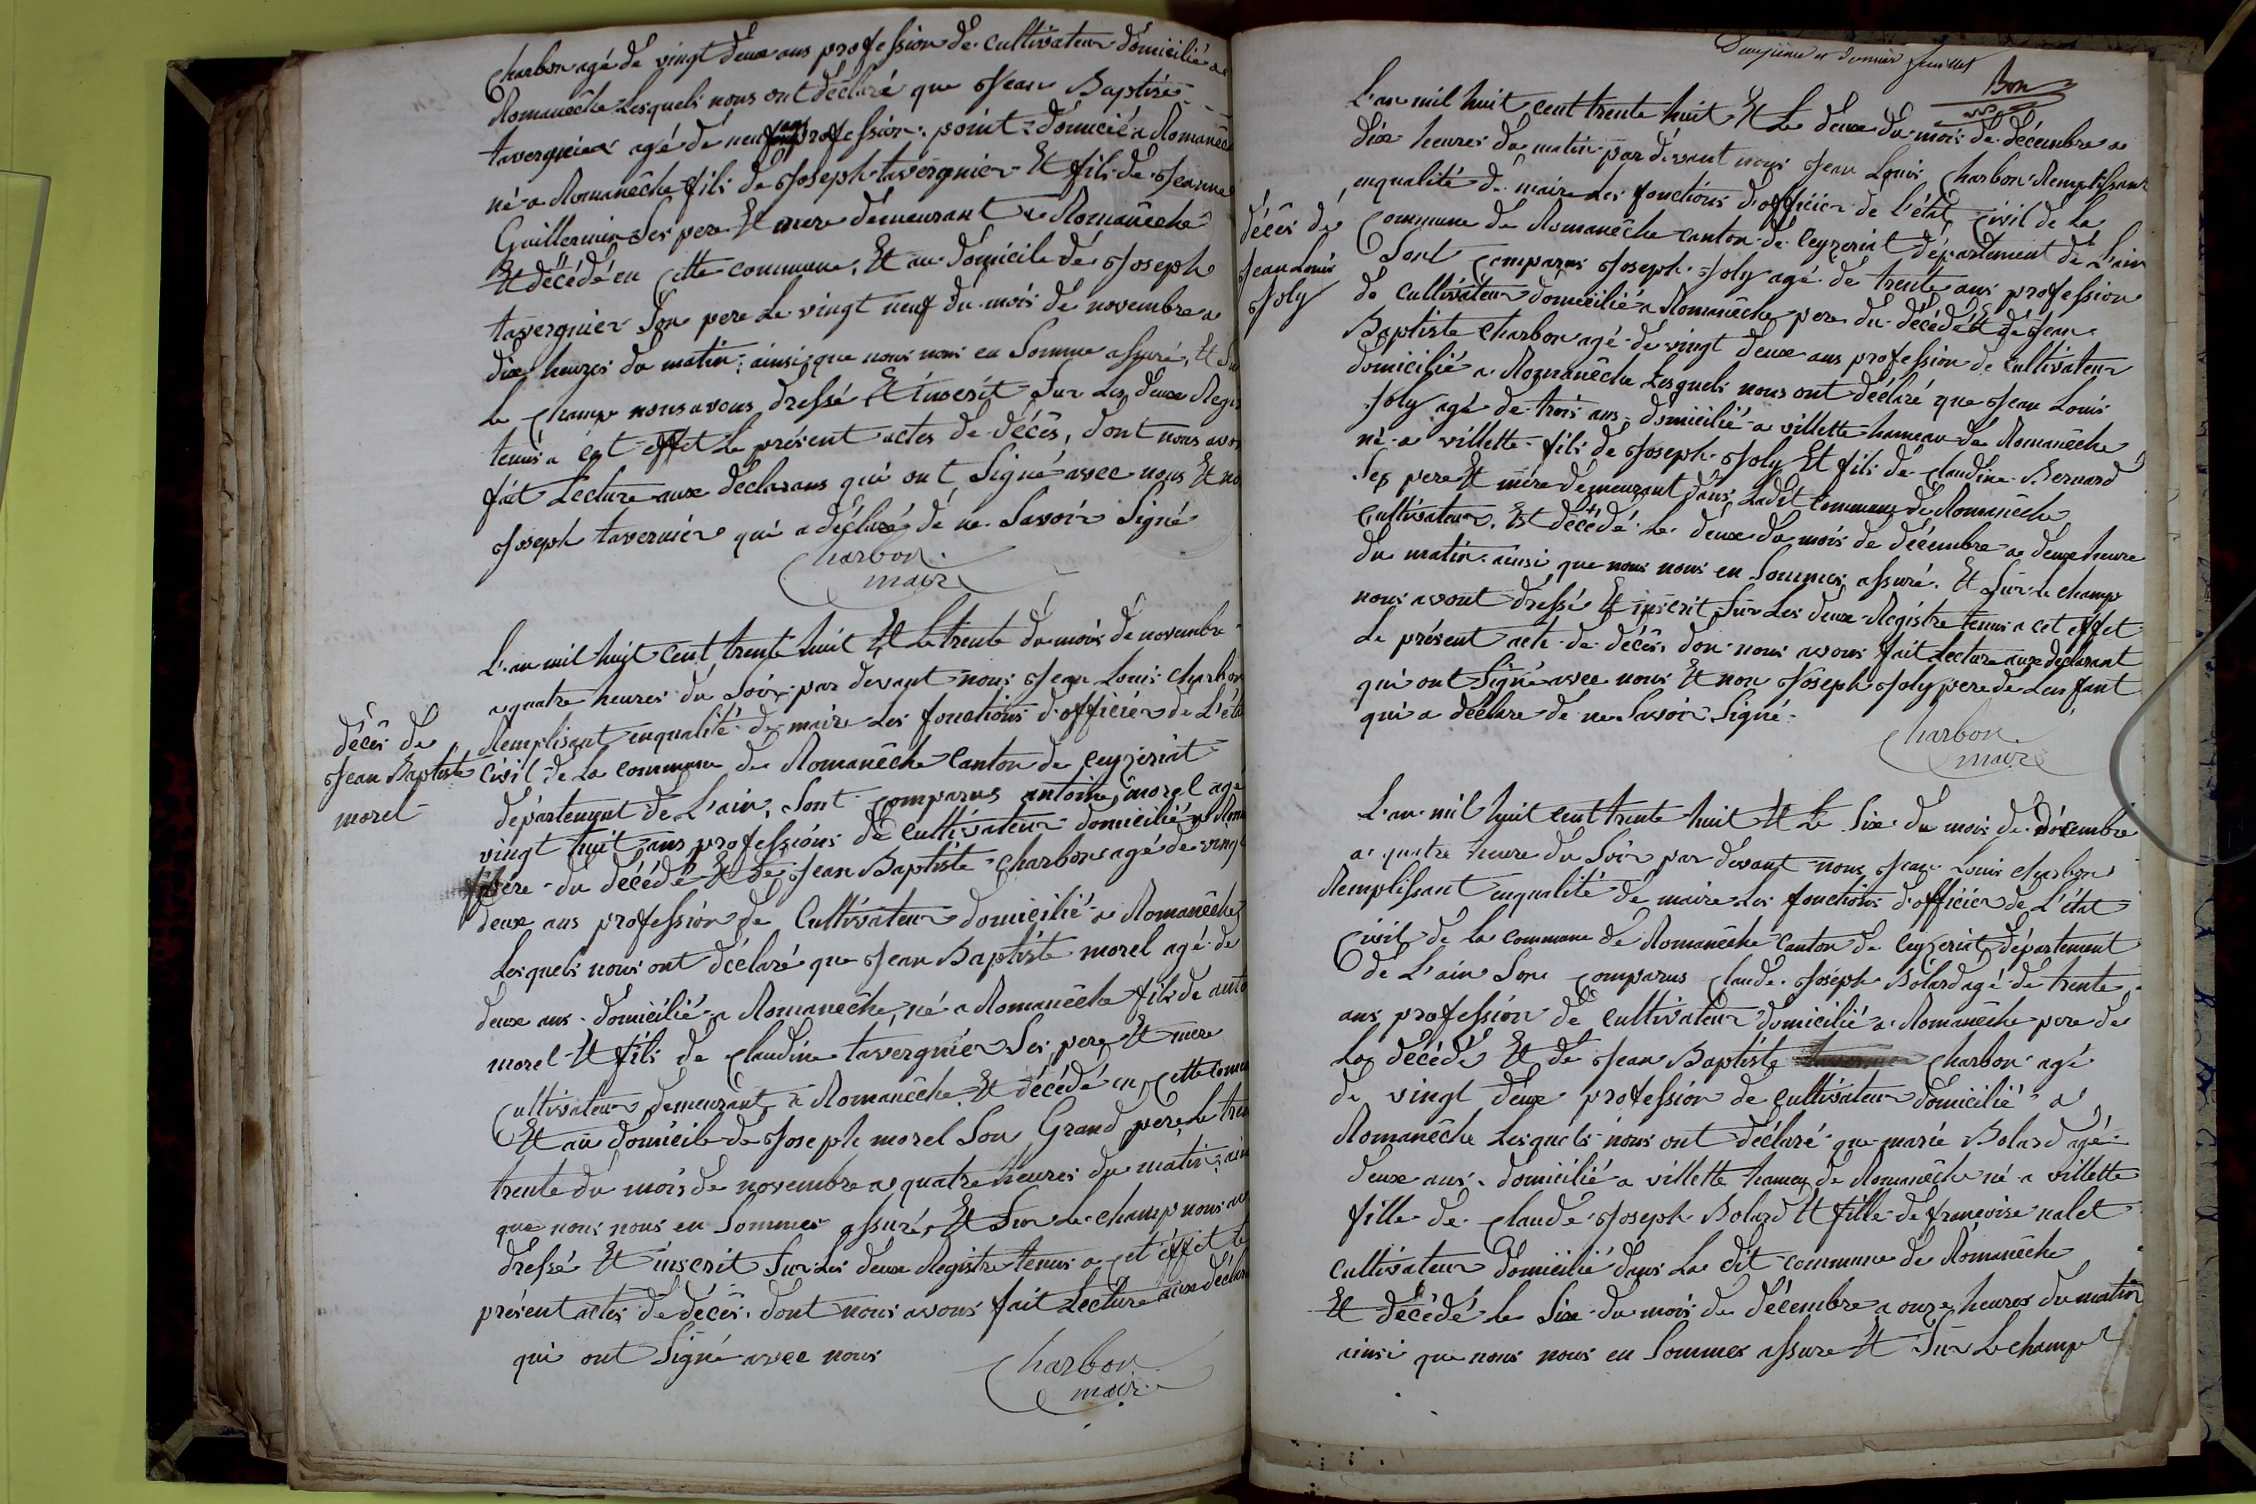 Charbon agé de vingt deux ans profession de cultivateur domicilié a
Romanêche Lesquels nous ont déclaré que Jean Baptiste
tavergnier agé de neuf ans profession point domicié a Romanêche
né a Romanêche fils de Joseph tavergnier Et fils de Jeanne
Guillermin Ses pere Et mere demeurant a Romanêche
Et décédé en Cette commune, Et au domicile de Joseph
tavergnier Son pere Le vingt neuf du mois de novembre a
dix heures du matin; ainsi que nous nous en Somme assuré, Et Sur
Le champ nous avons dressé Et inscrit Sur Les deux Regis
tenus a cet effet Le présent actes de décès, dont nous avons
fait Lecture aux déclarans qui ont Signé avec nous Et non
Joseph tavernier qui a déclaré de ne Savoir Signé
Charbon
maire
L'an mil huit cent trente huit Et Le trente du mois de novembre
a quatre heures du Soir par devant nous Jean Louis Charbon
Remplisant enqualité de maire Les fonctions d'officier de L'état
décès de
Jean Baptiste
morel
Civil de La commune de Romanêche Canton de Ceyzeriat
département de L'ain, Sont comparus antoine morel agé
vingt huit ans professions de Cultivateur domicilié a Roma
père du décédé Et de Jean Baptiste Charbon agé de vingt
deux ans profession de Cultivateur domicilié a Romanêche
Lesquels nous ont déclaré que Jean Baptiste morel agé de
deux ans domicilié a Romanêche, né a Romanêche fils de anto
morel Et fils de Claudine tavergnier Ses pere Et mere
Cultivateur demeurant a Romanêche Et décédé en Cette comm
Et au domicile de Joseph morel Son Grand pere, Le tren
trente du mois de novembre a quatre heures du matin, ains
que nous nous en Sommes assuré, Et Sur Le champ nous av
dressé Et inscrit Sur Les deux Registre tenus a cet effet Le
présent actes de décès. dont nous avons fait Lecture aux déclar
qui ont Signé avec nous
Charbon
maire
Deuxième et dernier feuillet
Bon
L'an mil huit cent trente huit Et Le deux du mois de décembre a
dix heures du matin par devant nous Jean Louis Charbon Remplissant
enqualité de maire Les fonctions d'officier de l'état Civil de La
décès de
Jean Louis
Joly
Commune de Romanêche canton de Ceyzeriat département de L'ain
Sont Comparus Joseph Joly agé de trente ans profession
de Cultivateur domicilié a Romanêche pere du décédé Et de Jean
Baptiste Charbon agé de vingt deux ans profession de Cultivateur
domicilié a Romanêche Lesquels nous ont déclaré que Jean Louis
Joly agé de trois ans, domicilié a villette hameau de Romanêche
né a villette fils de Joseph Joly Et fils de Claudine Bernard
Ses pere Et mère demeurant dans Ladit Commune de Romanêche
Cultivateur. Et décédé Le deux du mois de décembre a deux heure
du matin ainsi que nous nous en Sommes assuré. Et Sur Le champ
nous avont dressé Et inscrit Sur Les deux Registre tenus a cet effet
Le présent acte de décès. don nous avons fait Lecture aux declarant
qui ont Signé avec nous Et non Joseph Joly pere de Lenfant
qui a déclare de ne Savoir Signé
Charbon
maire
L'an mil huit cent trente huit Et Le Six du mois de décembre
a quatre heure du Soir par devant nous Jean Louis Charbon
Remplissant enqualité de maire Les fonctions d'officier de L'état
Civil de La commune de Romanêche Canton de Ceyzeriat département
de L'ain Son Comparus Claude Joseph Bolard agé de trente
ans profession de Cultivateur domicilié a Romanêche pere de
La décédé Et de Jean Baptiste Charbon agé
de vingt deux profession de Cultivateur domicilié a
Romanêche Lesquels nous ont déclaré que marie Bolard agé
deux ans. domicilié a villette hameau de Romanêche né a villette
fille de Claude Joseph Bolard Et fille de francoise nalet
Cultivateur domicilié dans La dit commune de Romanêche
Et décédé Le Six du mois de décembre a onze heures du matin
ainsi que nous nous en Sommes assure Et Sur Le champ